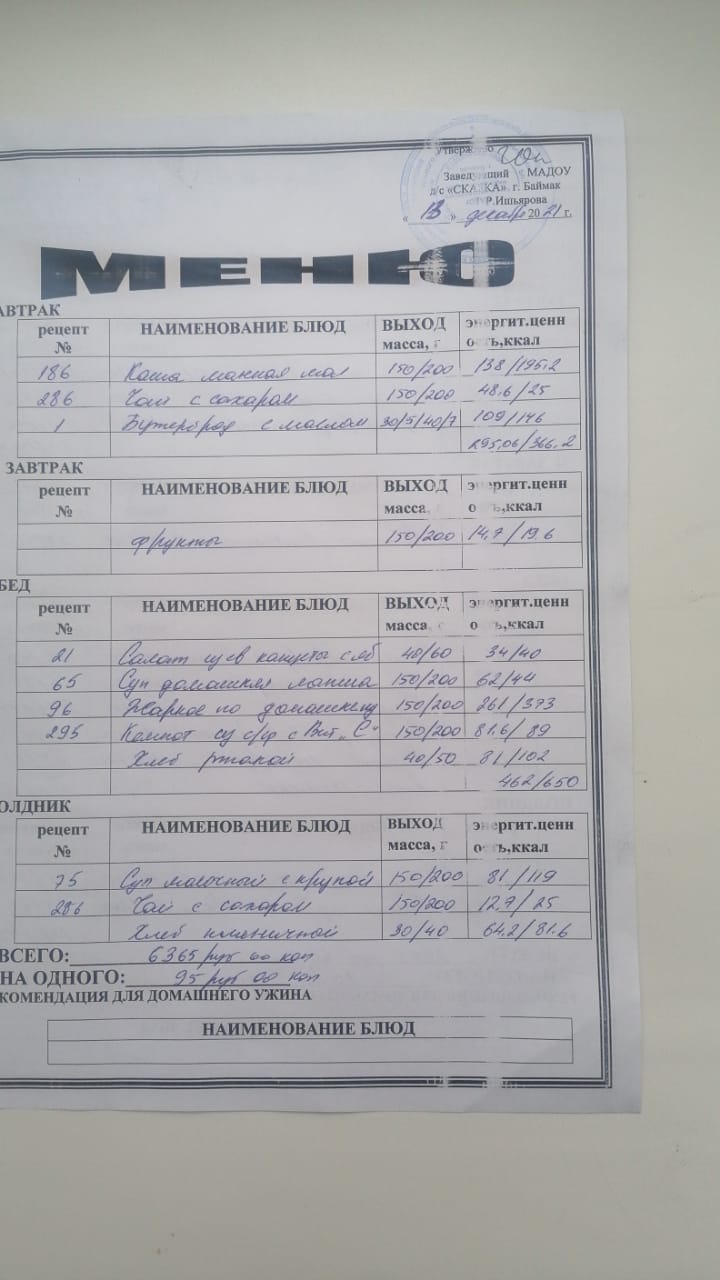 Утверждено
Заведующий МАДОУ
д/с «СКАЗКА» г. Баймак
Р.Ишьярова
« 13 » декабря 2021 г.
МЕНЮ
АВТРАК
рецепт № НАИМЕНОВАНИЕ БЛЮД ВЫХОД масса, г энергит.ценн ость,ккал
186 Каша манная мол 150/200 138/195.2
286 Чай с сахаром 150/200 48.6/25
1 Бутерброд с маслом 30/5/40/7 109/146
295,06/366.2
ЗАВТРАК
рецепт № НАИМЕНОВАНИЕ БЛЮД ВЫХОД масса, энергит.ценн ость,ккал
фрукты 150/200 14.7/19.6
БЕД
рецепт № НАИМЕНОВАНИЕ БЛЮД ВЫХОД масса, г энергит.ценн ость,ккал
21 Салат из св капусты с яб 40/60 34/40
65 Суп домашняя лапша 150/200 62/44
96 Жаркое по домашнему 150/200 261/373
295 Компот из с/ф с Вит „С" 150/200 81.6/89
Хлеб ржаной 40/50 81/102
462/650
ОЛДНИК
рецепт № НАИМЕНОВАНИЕ БЛЮД ВЫХОД масса, г энергит.ценн ость,ккал
75 Суп молочный с крупой 150/200 81/119
286 Чай с сахаром 150/200 12.7/25
Хлеб пшеничной 30/40 64.2/81.6
ВСЕГО: 6365 руб 00 коп
НА ОДНОГО: 95 руб 00 коп
КОМЕНДАЦИЯ ДЛЯ ДОМАШНЕГО УЖИНА
НАИМЕНОВАНИЕ БЛЮД